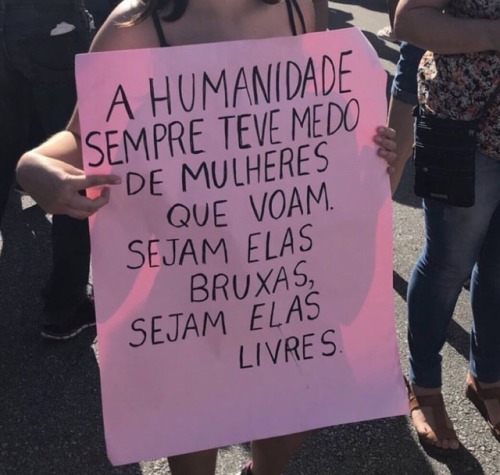 A HUMANIDADE
SEMPRE TEVE MEDO
DE MULHERES
QUE VOAM.
SEJAM ELAS
BRUXAS,
SEJAM ELAS
LIVRES.